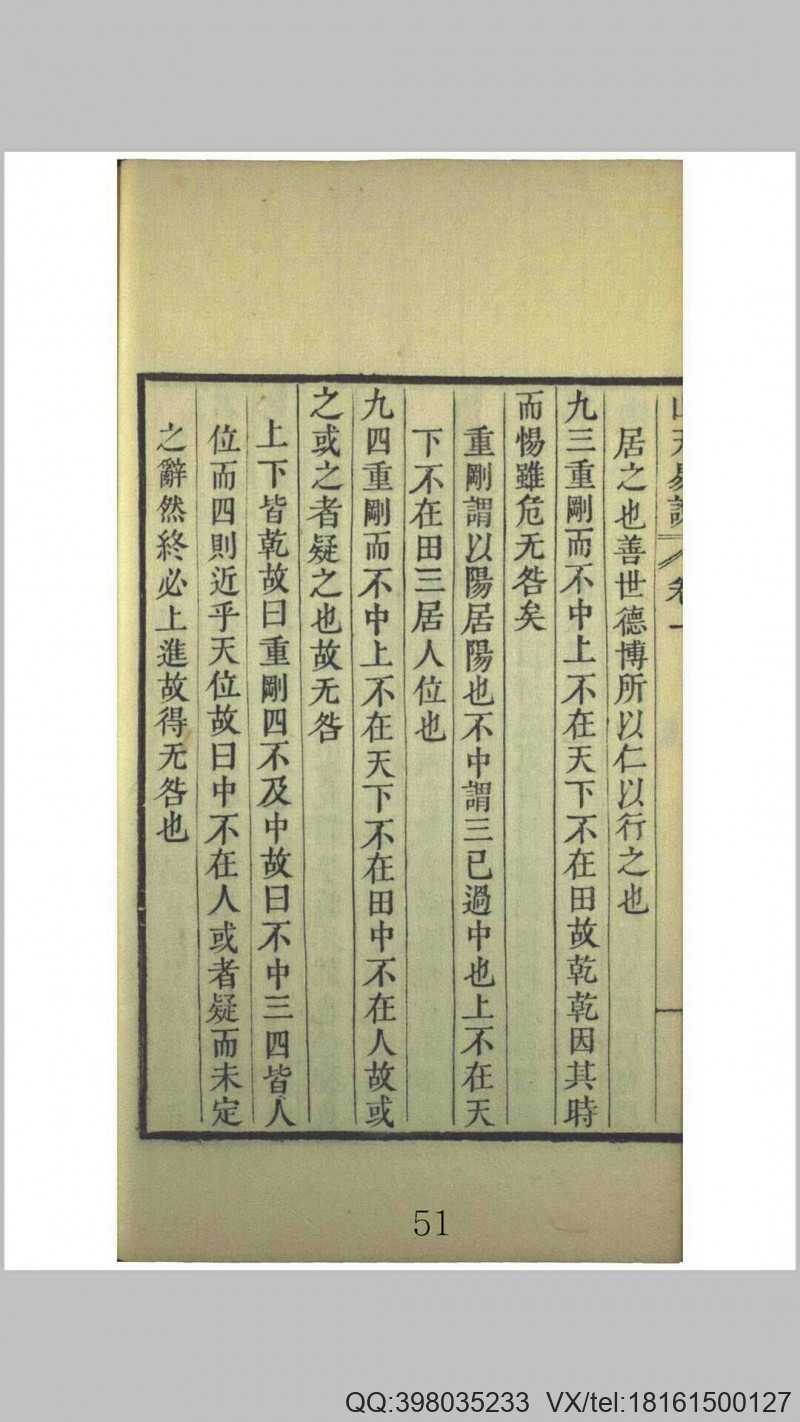 居之也善世德博所以仁以行之也
九三重剛而不中上不在天下不在田故乾乾因其時
而惕雖危无咎矣
重剛謂以陽居陽也不中謂三已過中也上不在天
下不在田三居人位也
九四重剛而不中上不在天下不在田中不在人故或
之或之者疑之也故无咎
上下皆乾故曰重剛四不及中故曰不中三四皆人
位而四則近乎天位故曰中不在人或者疑而未定
之辭然終必上進故得无咎也
51
QQ:398035233 VX/tel:18161500127